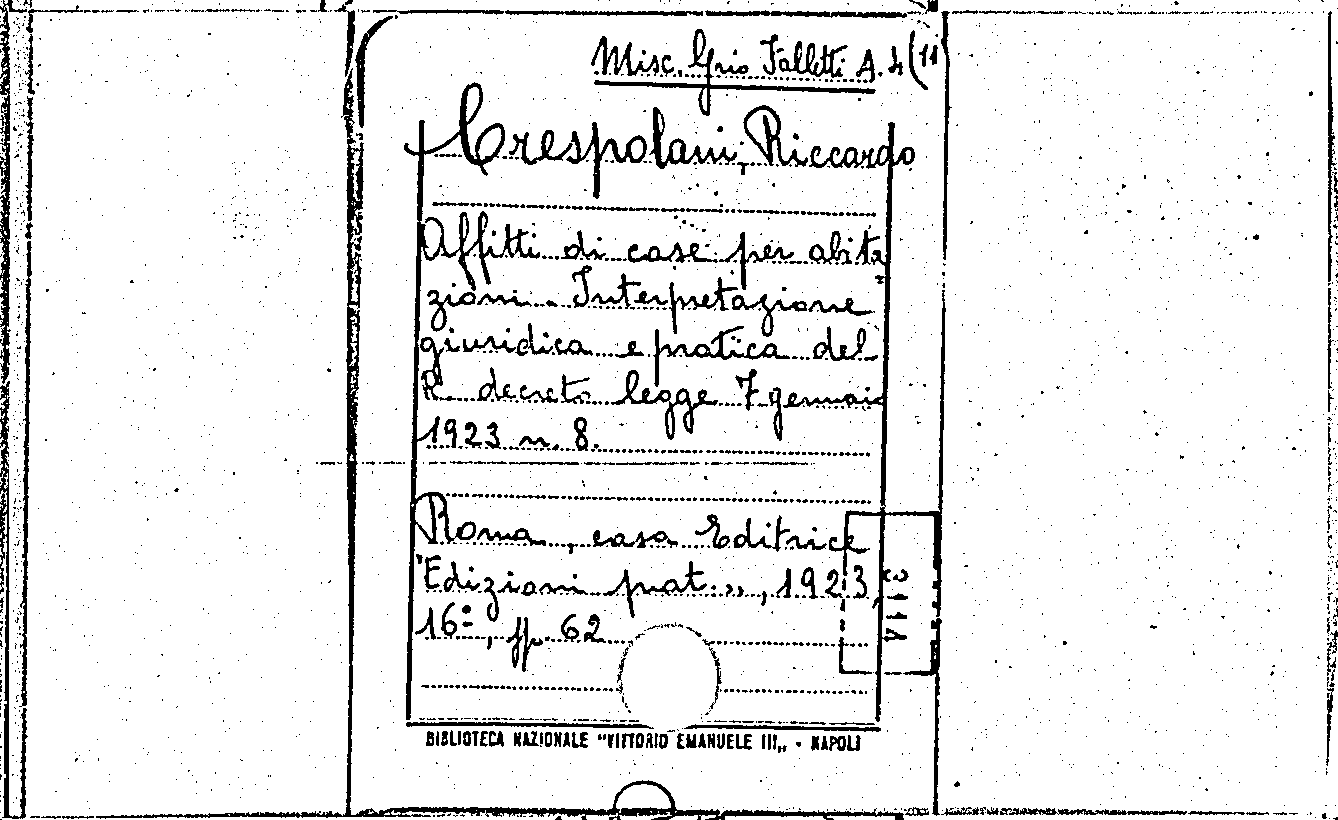 Misc. Grio Falletti A. 4 (11
Crespolani, Riccardo
Affitti di case per abita
zioni. Interpretazione
giuridica e pratica del
R. decreto legge 7 gennaio
1923 n. 8.
Roma, casa Editrice
"Edizioni prat.", 1923,
16º, pp. 62
BIBLIOTECA NAZIONALE "VITTORIO EMANUELE III„ - NAPOLI